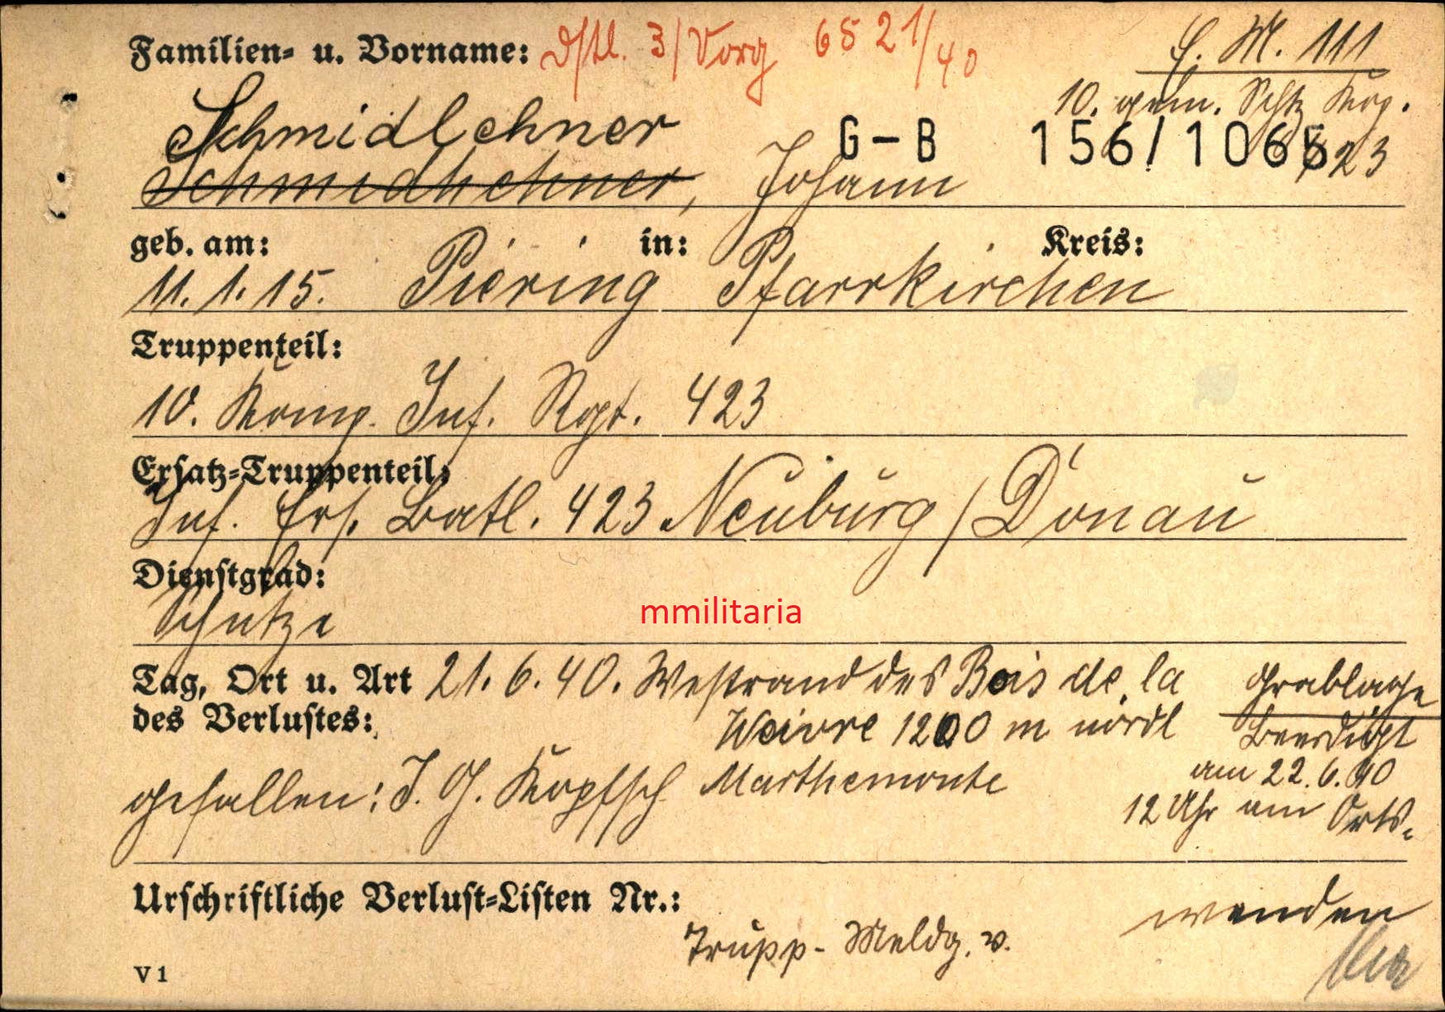 Familien- u. Vorname: 3/Vorg 6521/40
E. M. 111
10.
Schmidlehner
G-B 156/1065
Schmidhehner, Johann 623
geb. am: in: Kreis:
11.1.15. Piering Pfarrkirchen
Truppenteil:
10. Komp. Inf. Rgt. 423
Ersatz-Truppenteil:
Inf. Ers. Batl. 423 Neuburg / Donau
Dienstgrad:
Schütze
mmilitaria
Tag, Ort u. Art 21. 6. 40. Westrand des Bois de la
des Verlustes: Woivre 1200 m nördl
gefallen: I. G. Kopfsch Marthemonte
Grablage
Beerdigt
am 22.6.40
12 Uhr am Orts-
Urschriftliche Verlust-Listen Nr.:
wenden
Trupp- Meldg. v.
V 1